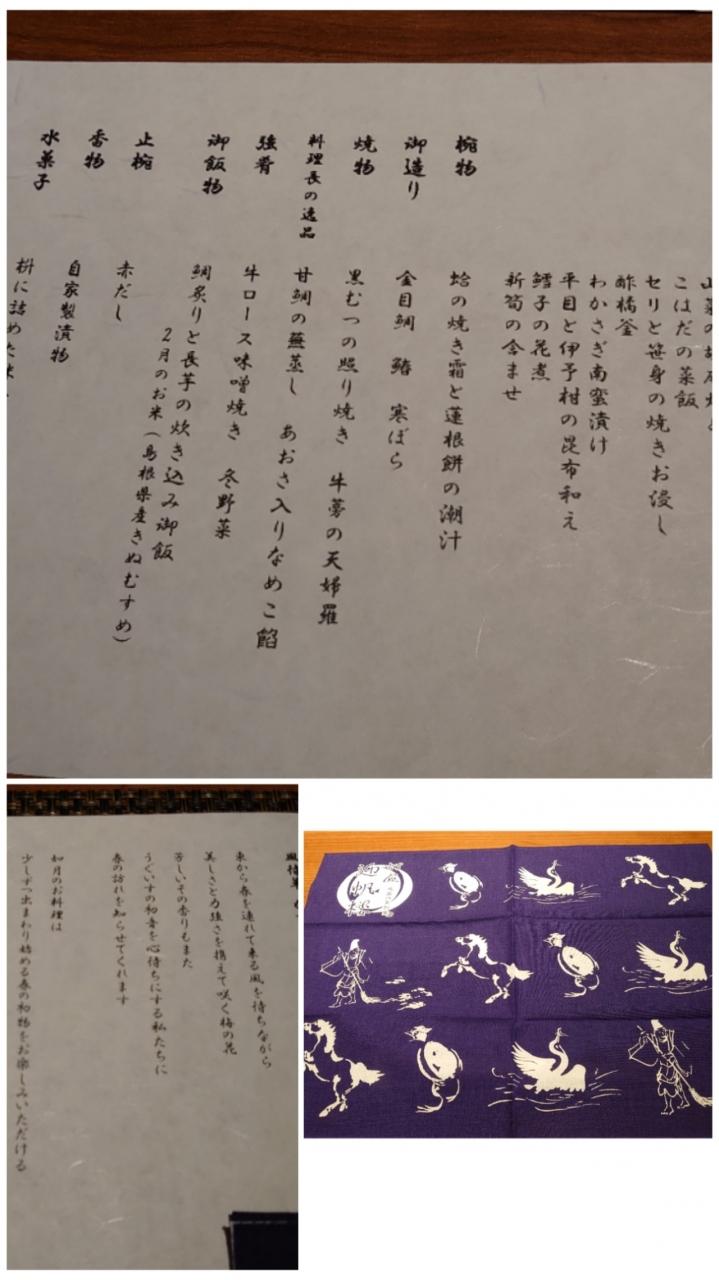 こはだの菜飯
セリと笹身の焼きお浸し
酢橘釜
わかさぎ南蛮漬け
平目と伊予柑の昆布和え
鱈子の花煮
新筍の含ませ
椀物　蛤の焼き霜と蓮根餅の潮汁
御造り　金目鯛　鰆　寒ぼら
焼物　黒むつの照り焼き　牛蒡の天婦羅
料理長の逸品　甘鯛の蕪蒸し　あおさ入りなめこ餡
強肴　牛ロース味噌焼き　冬野菜
御飯物　鯛炙りと長芋の炊き込み御飯
2月のお米（島根県産きぬむすめ）
止椀　赤だし
香物　自家製漬物
水菓子　枡に詰めた
東から春を連れて来る風を待ちながら
美しさと力強さを携えて咲く梅の花
芳しいその香りもまた
うぐいすの初音を心待ちにする私たちに
春の訪れを知らせてくれます
如月のお料理は
少しずつ出まわり始める春の初物をお楽しみいただける